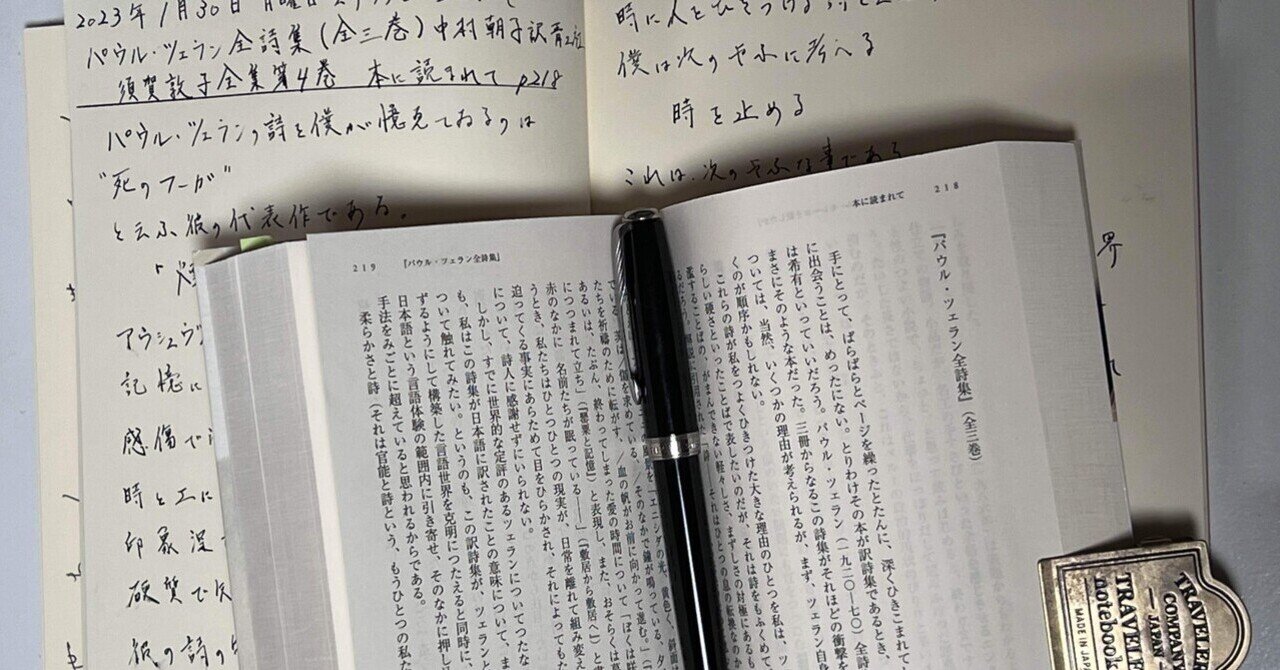 2023年1月30日 月曜日
パウル・ツェラン全詩集(全三巻)中村朝子訳 青土社
須賀敦子全集第4巻 本に読まれて p218
パウル・ツェランの詩を僕が憶えておるのは
“死のフーガ”
と云ふ彼の代表作である。
アウシュヴ
記憶に
感傷で
時と工に
印象深
硬質で
彼の詩の
時に人をひきつける
僕は次のやふに考へる
時を止める
これは、次のやふな事である
界
218
本に読まれて
『パウル・ツェラン全詩集』(全三巻)
手にとって、ぱらぱらとページを繰ったとたんに、深くひきこまれて
に出会うことは、めったにない。とりわけその本が訳詩集であるとき、
は希有といっていいだろう。パウル・ツェラン(一九二〇—七〇)全詩
まさにそのような本だった。三冊からなるこの詩集がそれほどの衝撃を
ついては、当然、いくつかの理由が考えられるが、まず、ツェラン自
くのが順序かもしれない。
これらの詩が私をつよくひきつけた大きな理由のひとつを私は、
らしい硬さといったことばで表したいのだが、それは詩をもふくめて
濫することばの、がまんできない軽々しさ、まずしさの対極にあるも
219
『パウル・ツェラン全詩集』
ている。
たちを祈禱のために転がす、/血の帆がお前に向かって進む。」
あるいは、たぶん、終わってしまった愛の時間について「ぼくは
につつまれて立ち」(『罌粟と記憶』)と表現し、また、おそらくは
赤のなかに 名前たちが眠っている——」(『敷居から敷居へ』)と
うとき、私たちはひとつひとつの現実が、日常を離れて組み変え
迫ってくる事実にあらためて目をひらかされ、それによってもた
について、詩人に感謝せずにいられない。
しかし、すでに世界的な定評のあるツェランについてつたな
も、私はこの詩集が日本語に訳されたことの意味について、ま
ついて触れてみたい。というのも、この訳詩集が、ツェランと
ずるようにして構築した言語世界を克明につたえると同時に、
日本語という言語体験の範囲内に引き寄せ、そのなかに押し
手法をみごとに超えていると思われるからである。
柔らかさと詩(それは官能と詩という、もうひとつの私た
TRAVELER'S
COMPANY
JAPAN
TRAVELER'S
notebook
MADE IN JAPAN